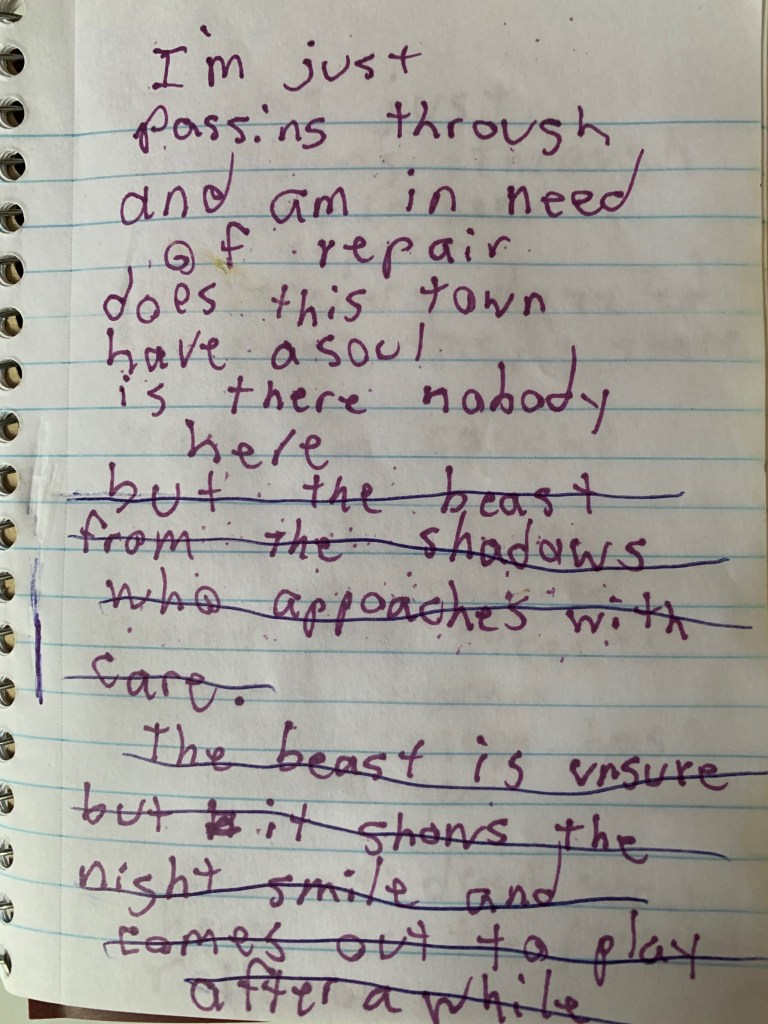 I'm just
passing through
and am in need
of repair
does this town
have a soul
is there nobody
here
but the beast
from the shadaws
who appoaches with
care.
The beast is unsure
but it shows the
night smile and
comes out to play
after a while